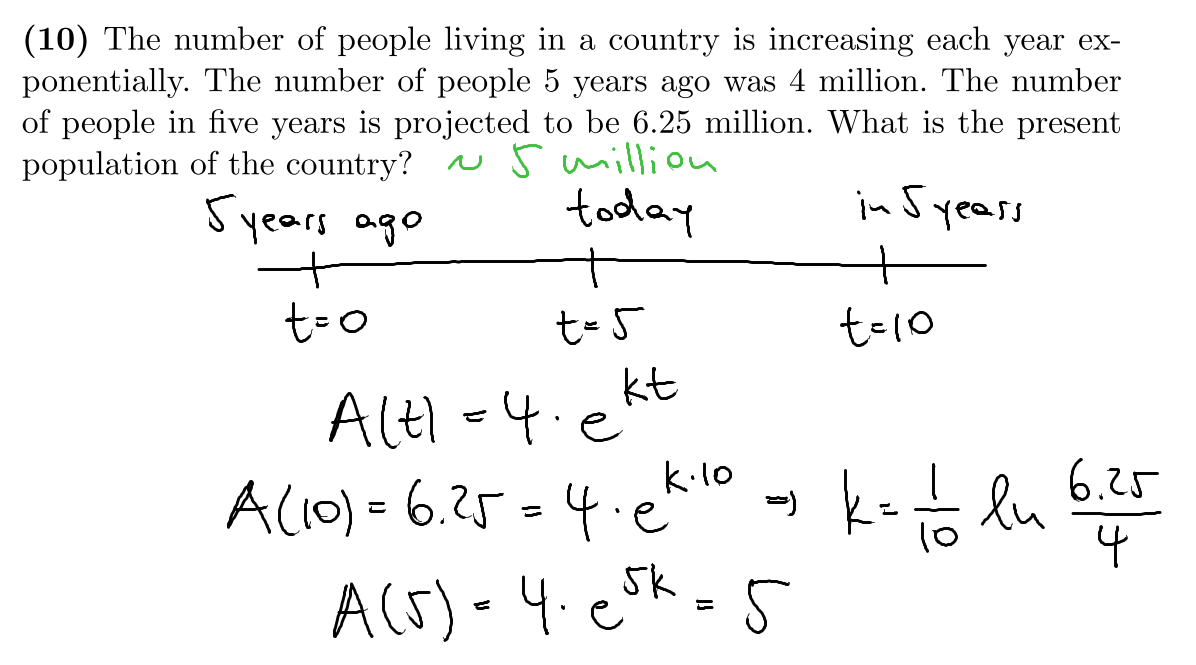 (10) The number of people living in a country is increasing each year ex-
ponentially. The number of people 5 years ago was 4 million. The number
of people in five years is projected to be 6.25 million. What is the present
population of the country? ~ 5 million
5 years ago today in 5 years
t=0 t=5 t=10
A(t) = 4 · e^{kt}
A(10) = 6.25 = 4 · e^{k·10} ⇒ k = \frac{1}{10} ln \frac{6.25}{4}
A(5) = 4 · e^{5k} = 5